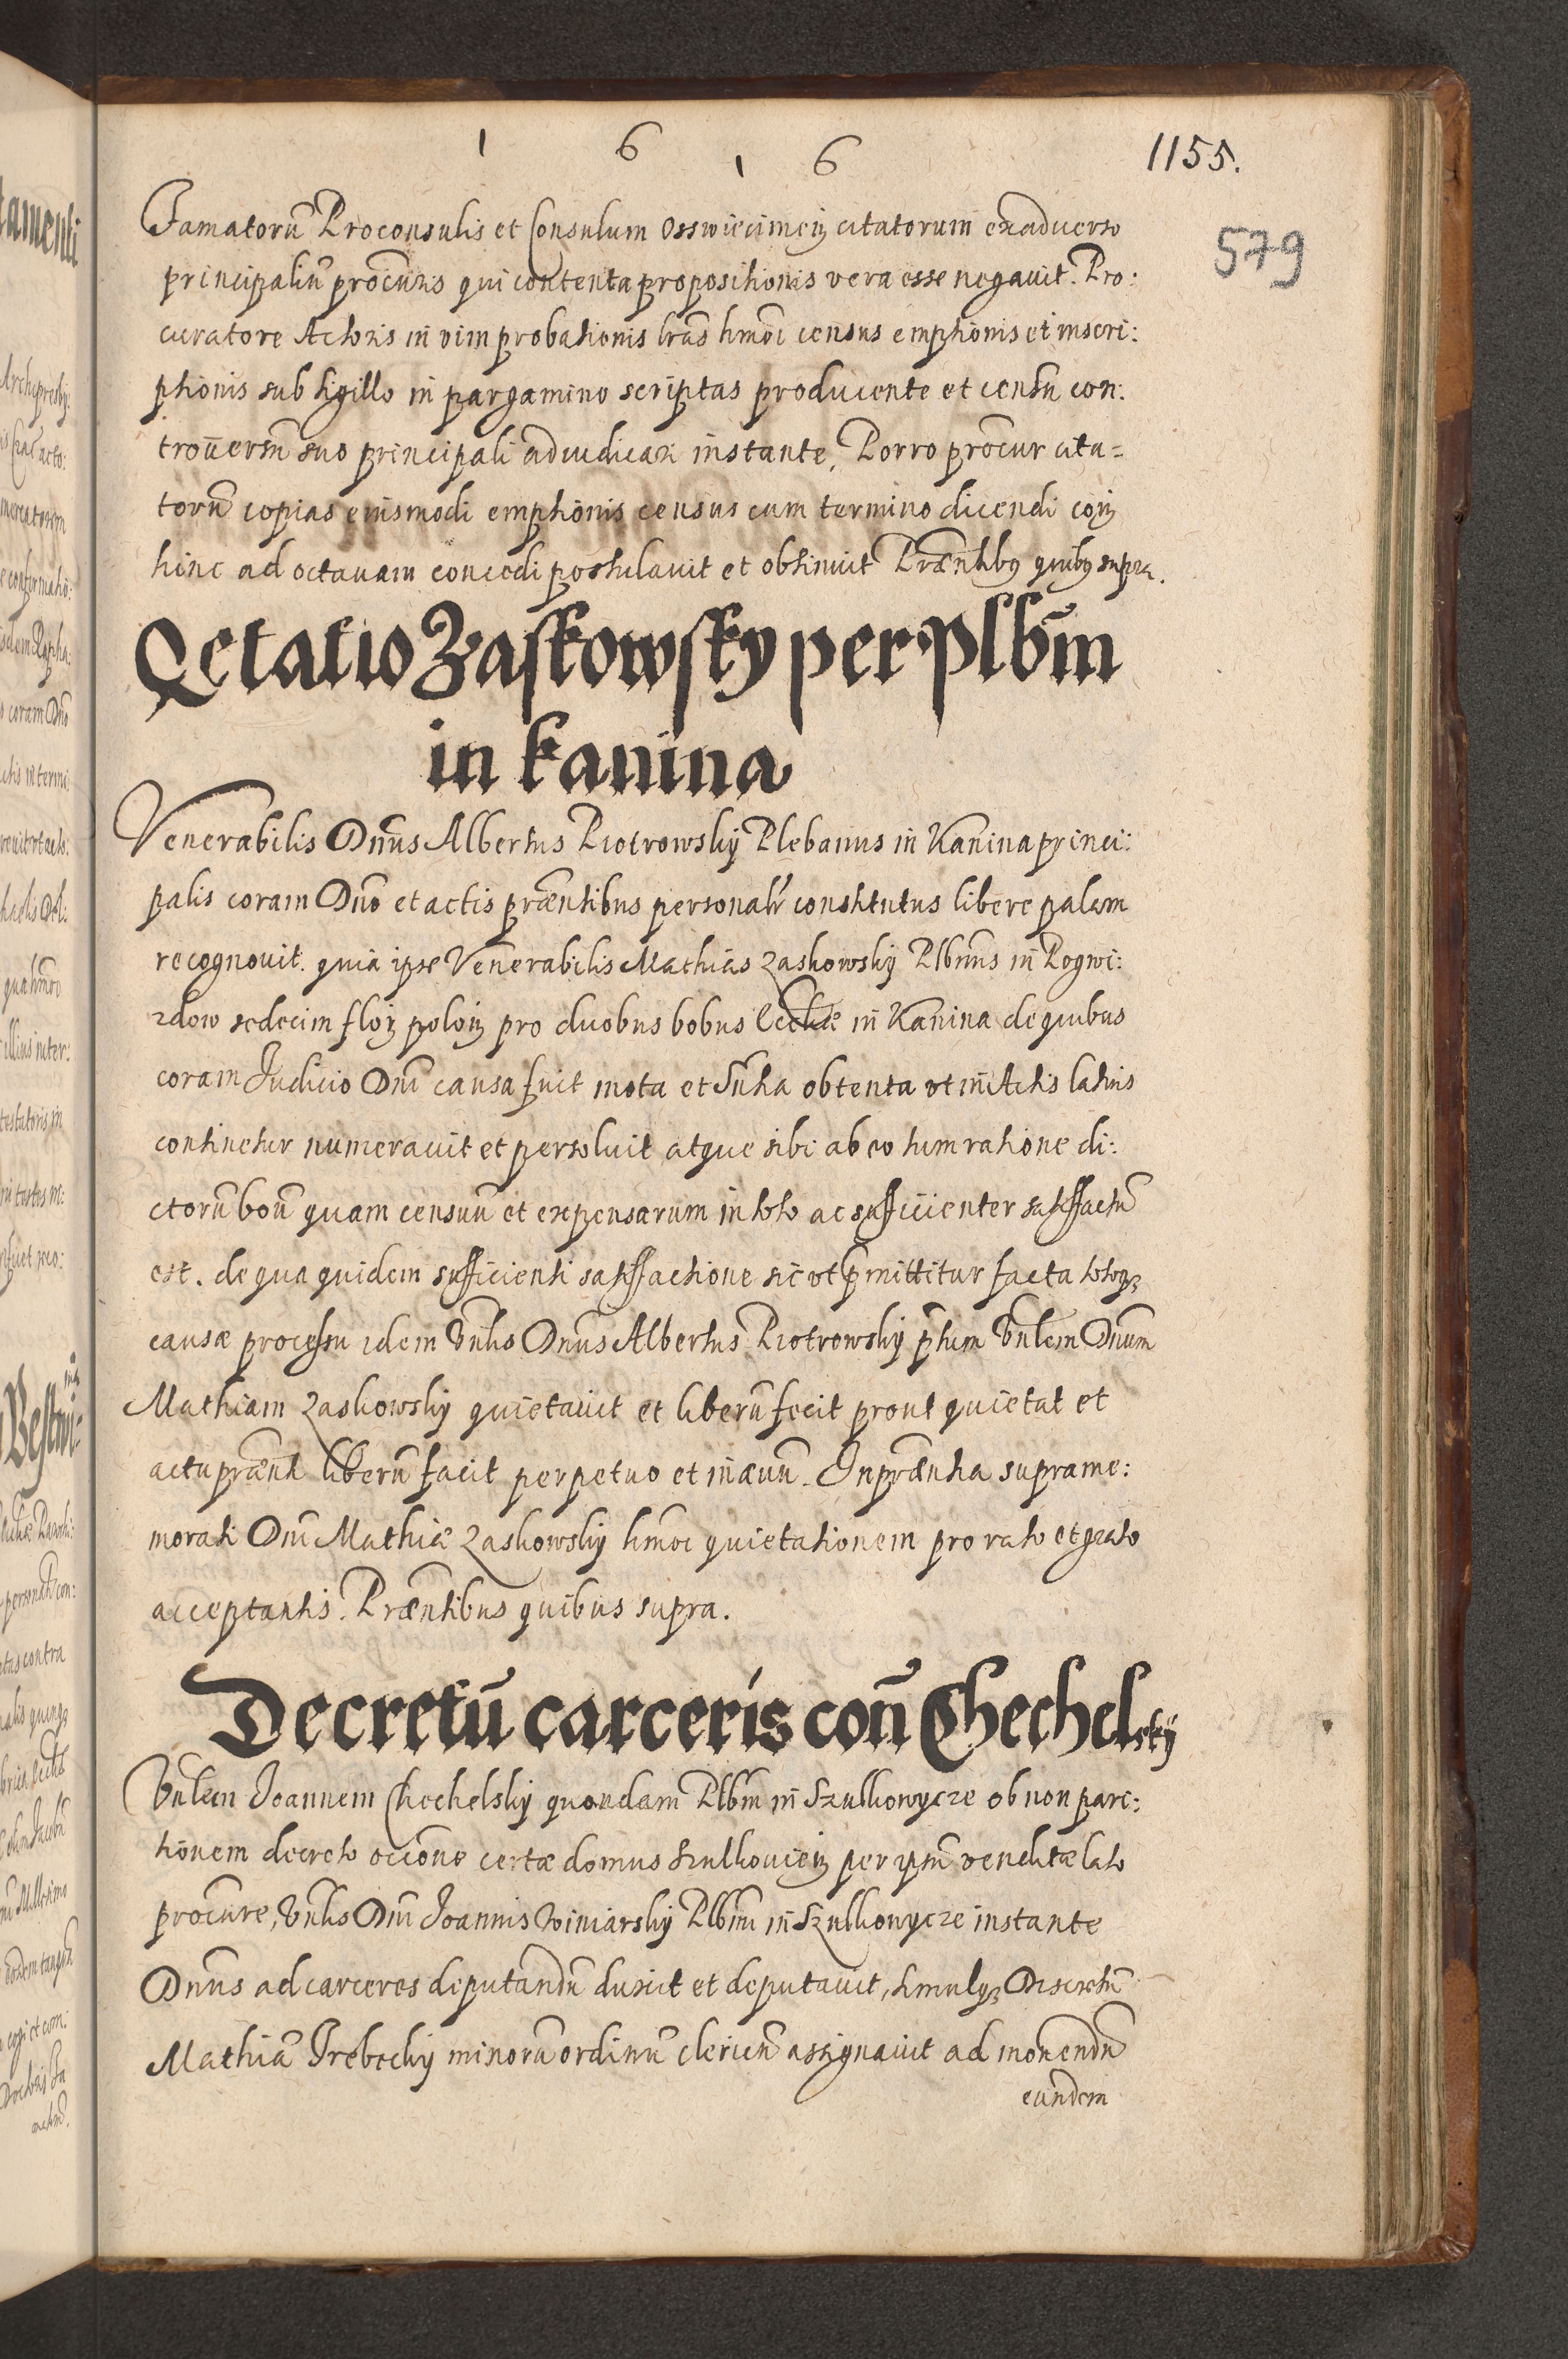 1 6 1 6
1155.
579
Famatorū Proconsulis et Consulum Osswiecimeṅ citatorum exaduerso
principaliū procuris qui contenta propositionis vera esse negavit. Pro:
curatore Actoris in vim probationis lrās hmōi census emptionis et inscri:
ptionis sub sigillo in pargamino scriptas producente et censū con:
trouersū suo principali adiudicari instante, Porro procur cita=
torū copias eiusmodi emptionis census cum termino dicendi coṅ
hinc ad octauam concedi postulauit et obtinuit Præntibꝯ quibꝯ supra.
Qetatio Zaskowsky per Plbm̄
in kanina
Venerabilis Dnūs Albertus Piotrowskÿ Plebanus in Kanina princi:
palis coram Dnō et actis præntibus personalr̄ constitutus libere palam
recognouit. quia ipse Venerabilis Mathias Zaskowskÿ Plbnūs in Pogwi:
zdow sedecim floṅ poloṅ pro duobus bobus Ecclīæ in Kanina de quibus
coram Judicio Dnī causa fuit mota et Sn̄tia obtenta vt in Actis latius
continetur numerauit et persoluit atque sibi ab eo tum ratione di:
ctorū boū quam censuū et expensarum in toto ac sufficienter satisfactū
est. de qua quidem sufficienti satisfactione sic vt p̄mittitur facta totoqꝫ
causæ processu idem Vn̄lis Dnūs Albertus Piotrowskÿ p̄tum Vn̄lem Dnūm
Mathiam Zaskowskÿ quietauit et liberū fecit prout quietat et
actu præn̄ti liberū facit perpetuo et in æuū. In præn̄tia suprame:
morati Dnī Mathiæ Zaskowskÿ hmōi quietationem pro rato et grato
acceptantis. Præn̄tibus quibus supra.
Decretū carceris con̄ Chechelskÿ
Vn̄lem Joannem Chechelskÿ quondam Plbm̄ in Szulkowycze ob non pari:
tionem decreto occōne certæ domus Szulkouieṅ per ipsū venditæ lato
procur̄e, Vn̄lis Dnī Joannis Winiarskÿ Plbm̄ in Szulkowycze instante
Dnūs ad carceres deputandū duxit et deputauit, simulqꝫ Discretū
Mathiā Trebeckÿ minorū ordinū clericū assignauit ad monendū
eundem